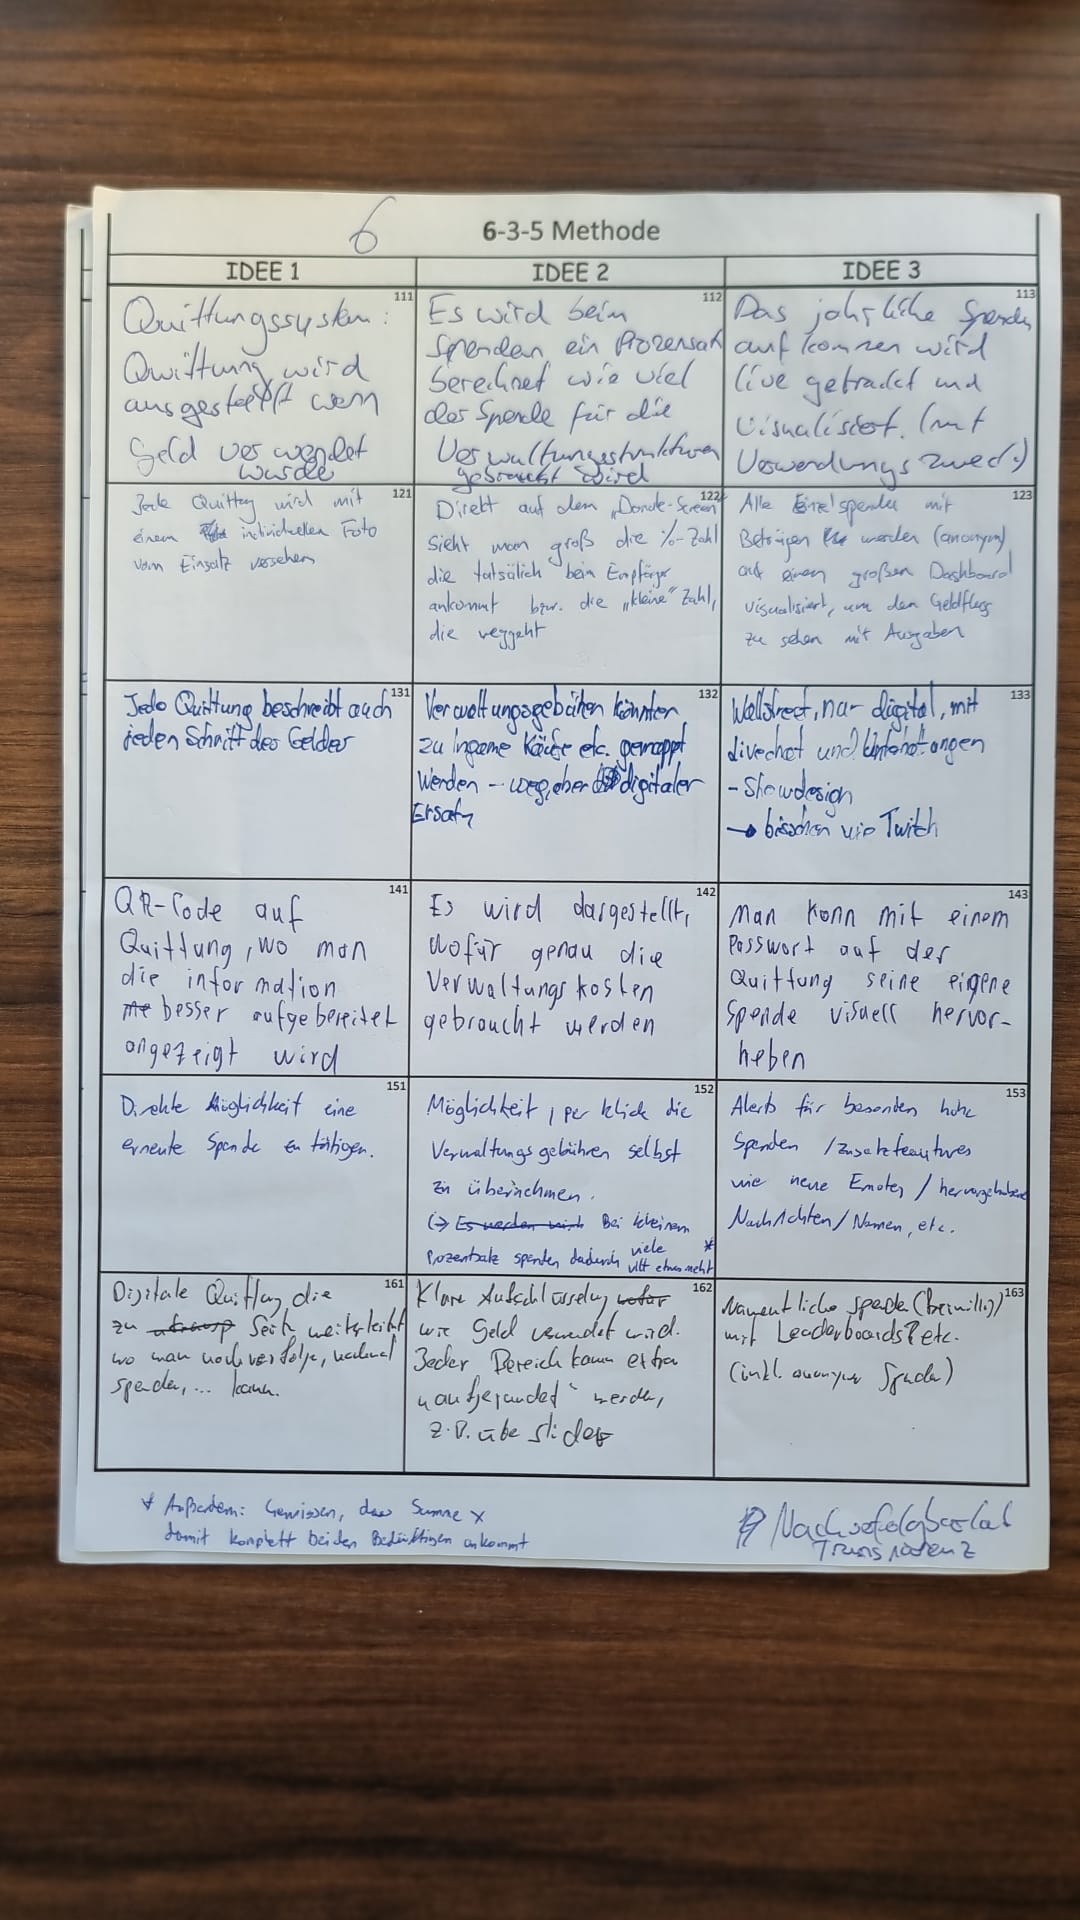 6
6-3-5 Methode
IDEE 1
IDEE 2
IDEE 3
111
Quittungssystem:
Quittung wird
ausgestellt wenn
Geld verwendet
wurde
112
Es wird beim
Spenden ein Prozensatz
berechnet wie viel
der Spende für die
Verwaltungsstrukturen
gebraucht wird
113
Das jährliche Spenden
aufkommen wird
live getrackt und
visualisiert. (mit
Verwendungszweck)
121
Jede Quittung wird mit
einem individuellen Foto
vom Einsatz versehen
122
Direkt auf dem „Donate-Screen"
sieht man groß die %-Zahl
die tatsälich beim Empfänger
ankommt bzw. die „kleine" Zahl,
die weggeht
123
Alle Einzelspenden mit
Beträgen werden (anonym)
auf einem großen Dashboard
visualisiert, um den Geldfluss
zu sehen mit Ausgaben
131
Jede Quittung beschreibt auch
jeden Schritt des Geldes
132
Verwaltungsgebüren könnten
zu Ingame Käufe etc. gemappt
werden - weg, aber digitaler
Ersatz
133
Wallstreet, nur digital, mit
livechat und
- Showdesign
→ bisschen wie Twitch
141
QR-Code auf
Quittung, wo man
die information
besser aufgebereitet
angezeigt wird
142
Es wird dargestellt,
wofür genau die
Verwaltungskosten
gebraucht werden
143
Man kann mit einem
Passwort auf der
Quittung seine eigene
Spende visuell hervor-
heben
151
Direkte Möglichkeit eine
erneute Spende zu tätigen.
152
Möglichkeit, per Klick die
Verwaltungsgebühren selbst
zu übernehmen.
(→ Es werden Bei kleinem
Prozentsatz spenden dadurch viele vllt etwas mehr *
153
Alerts für besonders hohe
Spenden / Zusatzfeautures
wie neue Emotes / hervorgehobene
Nachrichten / Namen, etc.
161
Digitale Quittung die
zu Seite weiterleitet
wo man noch verfolgen, nochmal
spenden, ... kann.
162
Klare Aufschlüsselung wofür
wie Geld verwendet wird.
Jeder Bereich kann extra
„aufgerundet" werden,
z.B. über slider
163
Namentliche Spende (freiwillig)
mit Leaderboards? etc.
(inkl. anonymer Spenden)
* Außerdem: Gewissen, dass Summe x
damit komplett bei den Bedürftigen ankommt
Nachverfolgbarkeit
Transparenz